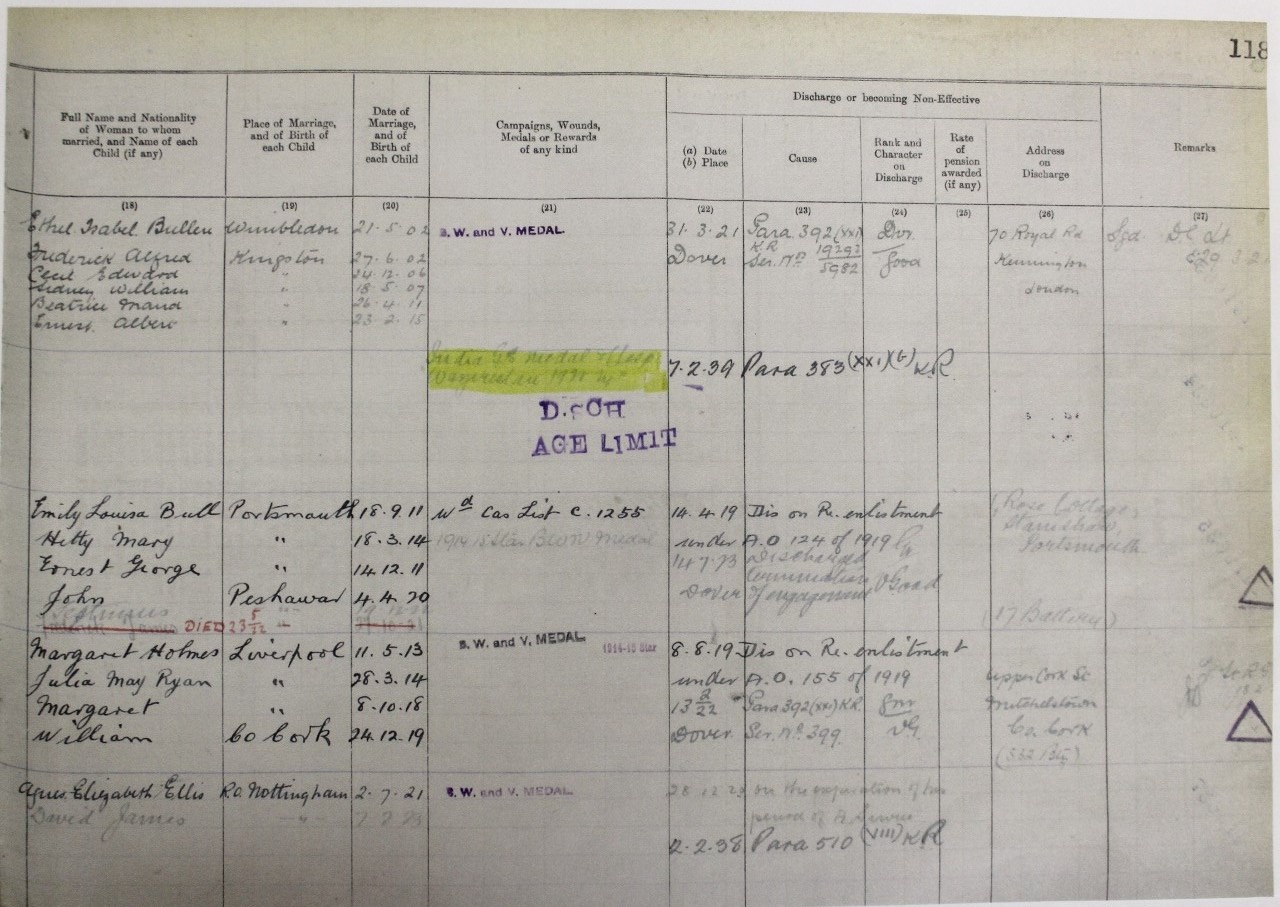 118
Discharge or becoming Non-Effective
Full Name and Nationality of Woman to whom married, and Name of each Child (if any)
Place of Marriage, and of Birth of each Child
Date of Marriage, and of Birth of each Child
Campaigns, Wounds, Medals or Rewards of any kind
(a) Date (b) Place
Cause
Rank and Character on Discharge
Rate of pension awarded (if any)
Address on Discharge
Remarks
(18) (19) (20) (21) (22) (23) (24) (25) (26) (27)
Ethel Isabel Bullen Wimbledon 21.5.02 B. W. and V. MEDAL. 31.3.21 Para 392 (xxi) Dvr. 70 Royal Rd Sgd.
Frederick Alfred Kingston 27.6.02 Dover K R Ser. No 19292/5982 Good Kennington
Cecil Edward " 24.12.06
Sidney William " 18.5.07 London
Beatrice Maud " 26.4.11
Ernest Albert " 23.2.15
India GS medal
7.2.39 Para 383 (XXI)(b) K.R
DISCH
AGE LIMIT
Emily Louisa Bull Portsmouth 18.9.11 Wd Cas List C. 1255 14.4.19 Dis on Re.enlistment Rose Cottage,
Hetty Mary " 18.3.14 1914 15 Star BWV Medal under A.O 124 of 1919 Stamshaw,
Ernest George " 14.12.11 14.7.23 Discharged Portsmouth
John Peshawar 4.4.20 Dover Termination of engagement V Good
James DIED 23 5/22 " (17 Battery)
Margaret Holmes Liverpool 11.5.13 B. W. and V. MEDAL. 1914-15 Star 8.8.19 Dis on Re.enlistment
Julia May Ryan " 28.3.14 under A.O. 155 of 1919 Upper Cork St
Margaret " 8.10.18 13 2/22 Para 392 (xxi) K.R. Gnr Mitchelstown
William Co Cork 24.12.19 Dover Ser. No 399 VG. Co. Cork
(332 Bty)
Agnes Elizabeth Ellis R.O. Nottingham 2.7.21 B. W. and V. MEDAL. 28.12.23 on the expiration of his
David James " 7.2.23 period of A Service
2.2.38 Para 510 (VIII) K R